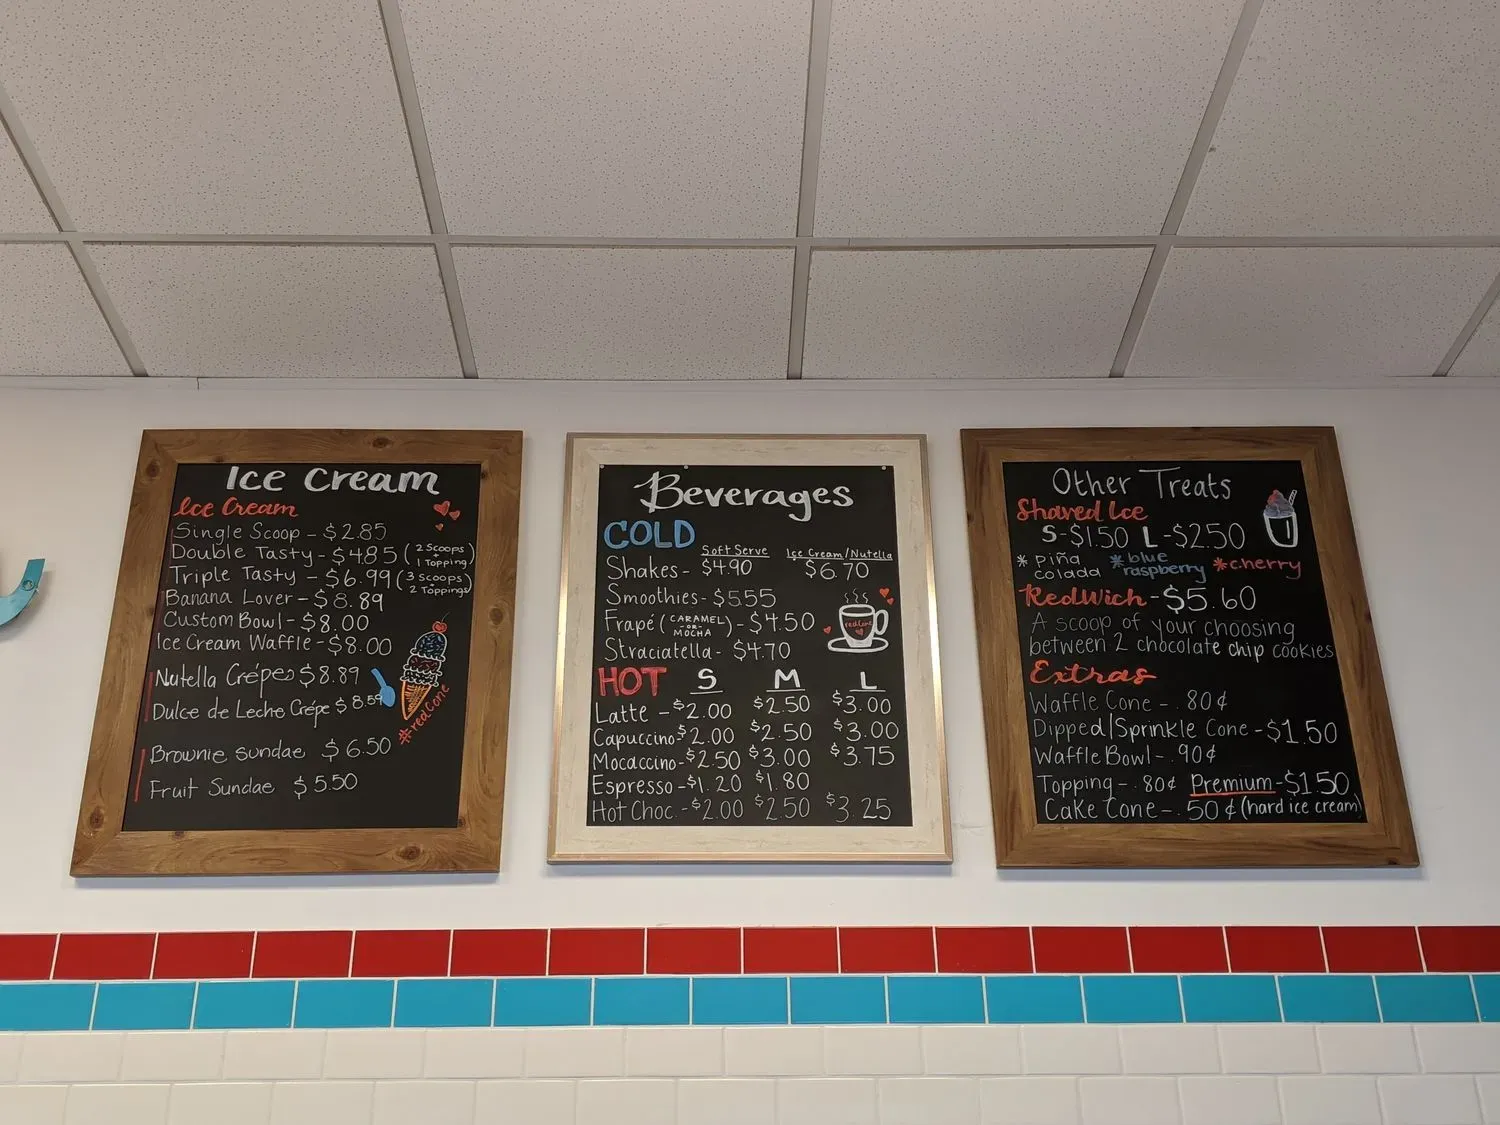 Ice Cream
Ice Cream
Single Scoop - $2.85
Double Tasty - $4.85 (2 Scoops + 1 Topping)
Triple Tasty - $6.99 (3 Scoops 2 Toppings)
Banana Lover - $8.89
Custom Bowl - $8.00
Ice Cream Waffle - $8.00
Nutella Crépes $8.89
Dulce de Leche Crépe $8.59
#redCone
Brownie Sundae $6.50
Fruit Sundae $5.50
Beverages
COLD
Soft Serve Ice Cream/Nutella
Shakes - $4.90 $6.70
Smoothies - $5.55
Frapé (CARAMEL -OR- MOCHA) - $4.50
Straciatella - $4.70
redCone
HOT S M L
Latte - $2.00 $2.50 $3.00
Capuccino - $2.00 $2.50 $3.00
Mocaccino - $2.50 $3.00 $3.75
Espresso - $1.20 $1.80
Hot Choc. - $2.00 $2.50 $3.25
Other Treats
Shaved Ice
S - $1.50 L - $2.50
* piña colada * blue raspberry * cherry
RedWich - $5.60
A scoop of your choosing
between 2 chocolate chip cookies
Extras
Waffle Cone - .80¢
Dipped/Sprinkle Cone - $1.50
Waffle Bowl - .90¢
Topping - .80¢ Premium - $1.50
Cake Cone - .50¢ (hard ice cream)